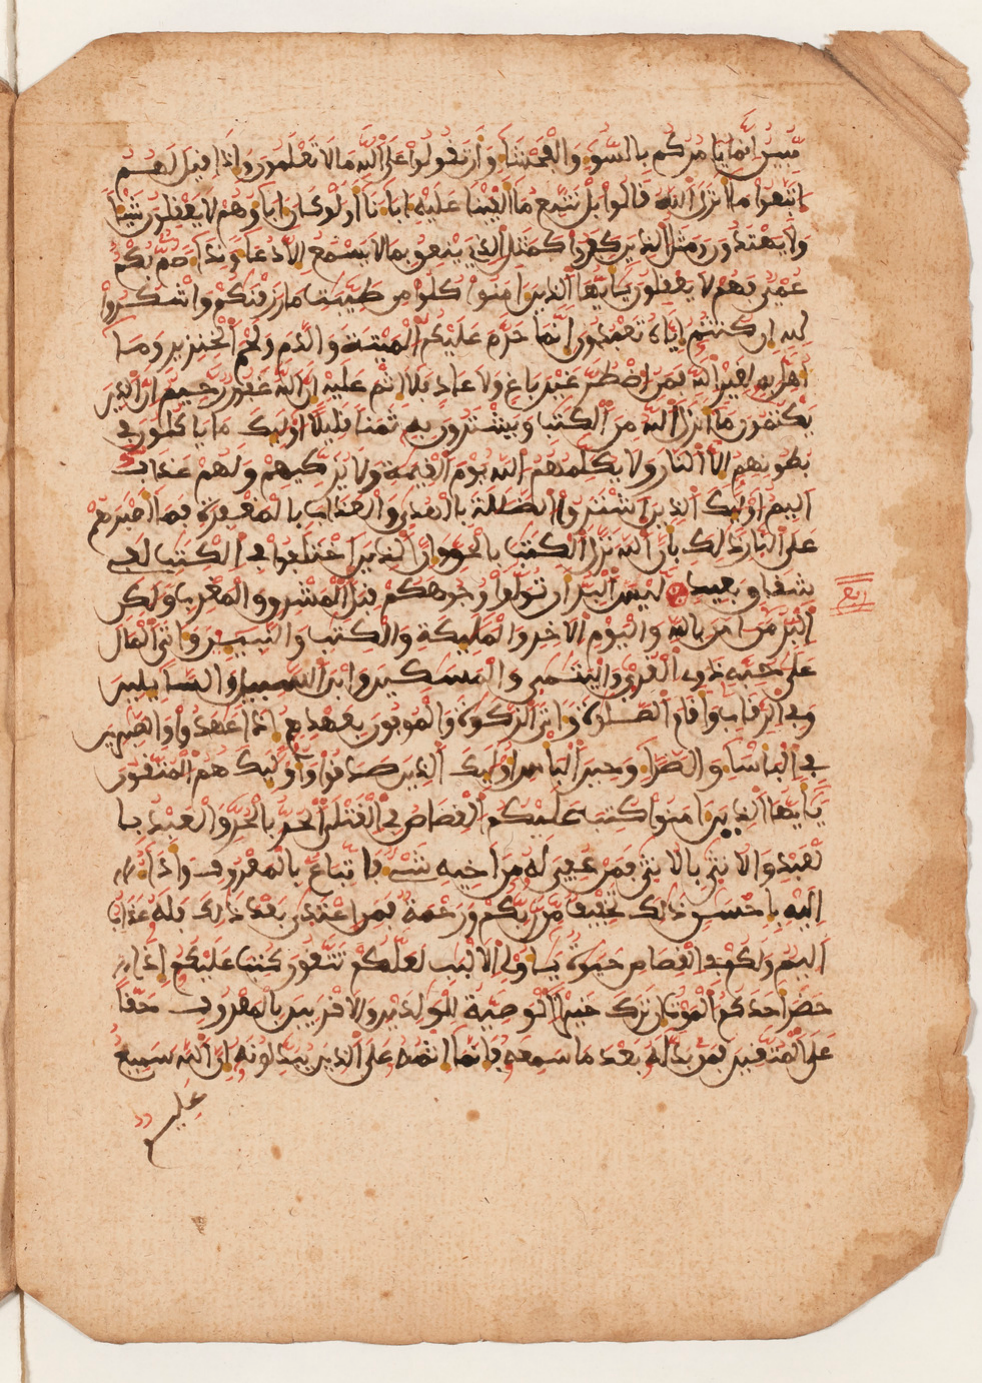 مبين انما يامركم بالسوء والفحشاء وان تقولوا على الله ما لا تعلمون واذا قيل لهم
اتبعوا ما انزل الله قالوا بل نتبع ما الفينا عليه اباءنا اولو كان اباوهم لا يعقلون شيئا
ولا يهتدون ومثل الذين كفروا كمثل الذي ينعق بما لا يسمع الا دعاء ونداء صم بكم
عمي فهم لا يعقلون يايها الذين امنوا كلوا من طيبت ما رزقنكم واشكروا
لله ان كنتم اياه تعبدون انما حرم عليكم الميتة والدم ولحم الخنزير وما
اهل به لغير الله فمن اضطر غير باغ ولا عاد فلا اثم عليه ان الله غفور رحيم ان الذين
يكتمون ما انزل الله من الكتب ويشترون به ثمنا قليلا اوليك ما ياكلون في
بطونهم الا النار ولا يكلمهم الله يوم القيمة ولا يزكيهم ولهم عذاب
اليم اوليك الذين اشتروا الضللة بالهدى والعذاب بالمغفرة فما اصبرهم
على النار ذلك بان الله نزل الكتب بالحق وان الذين اختلفوا في الكتب لفي
شقاق بعيد ليس البر ان تولوا وجوهكم قبل المشرق والمغرب ولكن
البر من امن بالله واليوم الاخر والمليكة والكتب والنبيين واتى المال
على حبه ذوي القربى واليتمى والمسكين وابن السبيل والسايلين
وفي الرقاب واقام الصلوة واتى الزكوة والموفون بعهدهم اذا عهدوا والصبرين
في الباساء والضراء وحين الباس اوليك الذين صدقوا واوليك هم المتقون
يايها الذين امنوا كتب عليكم القصاص في القتلى الحر بالحر والعبد با
لعبد والانثى بالانثى فمن عفي له من اخيه شيء فاتباع بالمعروف واداء
اليه باحسن ذلك تخفيف من ربكم ورحمة فمن اعتدى بعد ذلك فله عذاب
اليم ولكم في القصاص حيوة ياولي الالبب لعلكم تتقون كتب عليكم اذا
حضر احدكم الموت ان ترك خيرا الوصية للولدين والاقربين بالمعروف حقا
على المتقين فمن بدله بعد ما سمعه فانما اثمه على الذين يبدلونه ان الله سميع
عليم